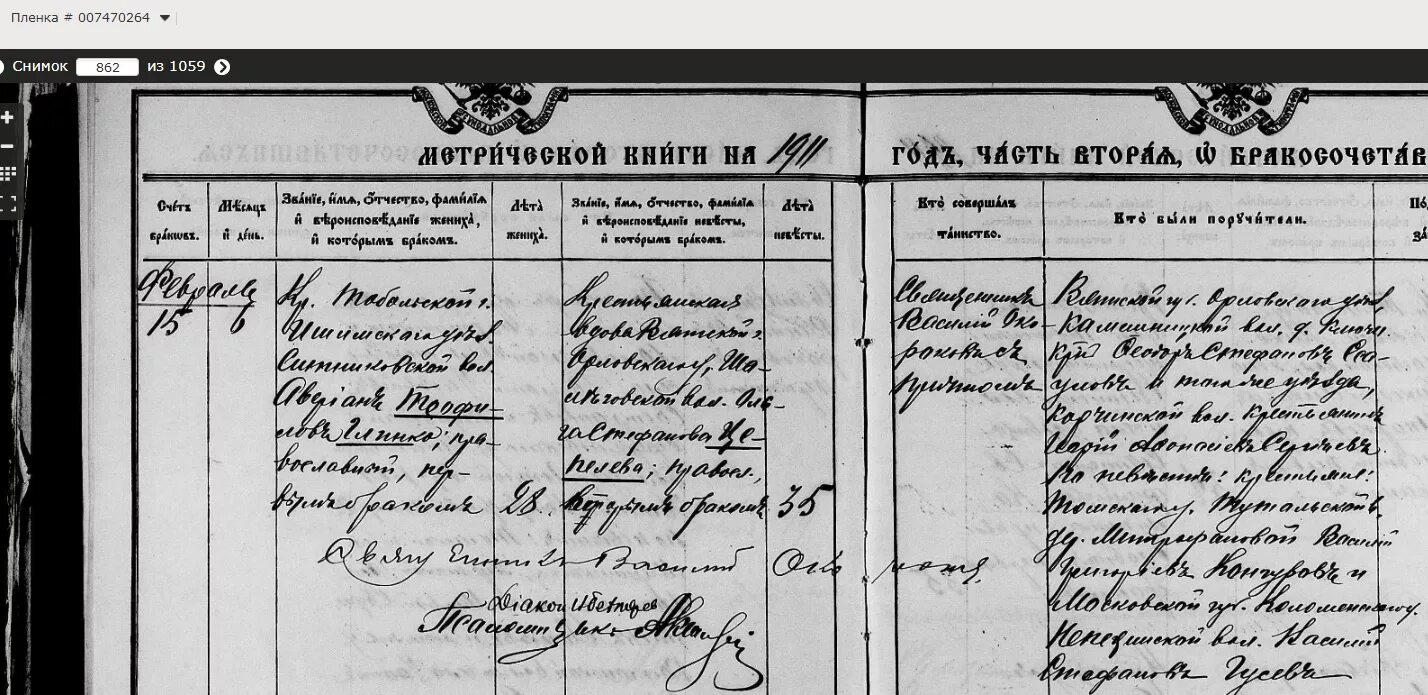 Пленка # 007470264
Снимок 862 из 1059
МЕТРИ́ЧЕСКОЙ КНИ́ГИ НА 1911
ГОДЪ, ЧА́СТЬ ВТОРА́Я, Ѡ БРАКОСОЧЕТАВ
Сче́тъ
бра́ковъ.
Мѣ́сяцъ
и де́нь.
Зва́нїе, и́мя, о́тчество, фами́лїя
и вѣроисповѣ́данїе жениха́,
и кото́рымъ бра́комъ.
Лѣ́та
жениха́.
Зва́нїе, и́мя, о́тчество, фами́лїя
и вѣроисповѣ́данїе невѣ́сты,
и кото́рымъ бра́комъ.
Лѣ́та
невѣ́сты.
Кто̀ соверша́лъ
та́инство.
Кто̀ бы́ли поручи́тели.
По́
за
Февраль
15 6
Кр. Тобольской г.
Ишимскаго уѣз.
Ситниковской вол.
Аверіанъ Теофи-
ловъ Глинко; пра-
вославный, пер-
вымъ бракомъ
28.
Крестьянская
вдова Вятской г.
Орловскаго у, Ша-
лѣговской вол. Оль-
га Стефанова Це-
пелева; правосл.,
вторымъ бракомъ
35
Священникъ
Василій Око-
роковъ съ
причтомъ
Вятской гу. Орловскаго уѣзд,
Камешницкой вол. д. Ключи
кр. Ѳеодоръ Стефановъ Еса-
уловъ и того же уѣзда,
Корчинской вол. крестьянинъ
Афонасіевъ Сергѣевъ.
По невѣстѣ: крестьяне:
Томскаго у. Тутальской в.
де. Митрофановой Василій
Григоріевъ Конгуровъ и
Московской губ. Коломенскаго у.
Непецинской вол. Василій
Стефановъ Гусевъ
Священникъ Василій Око
Діаконъ
Псаломщикъ